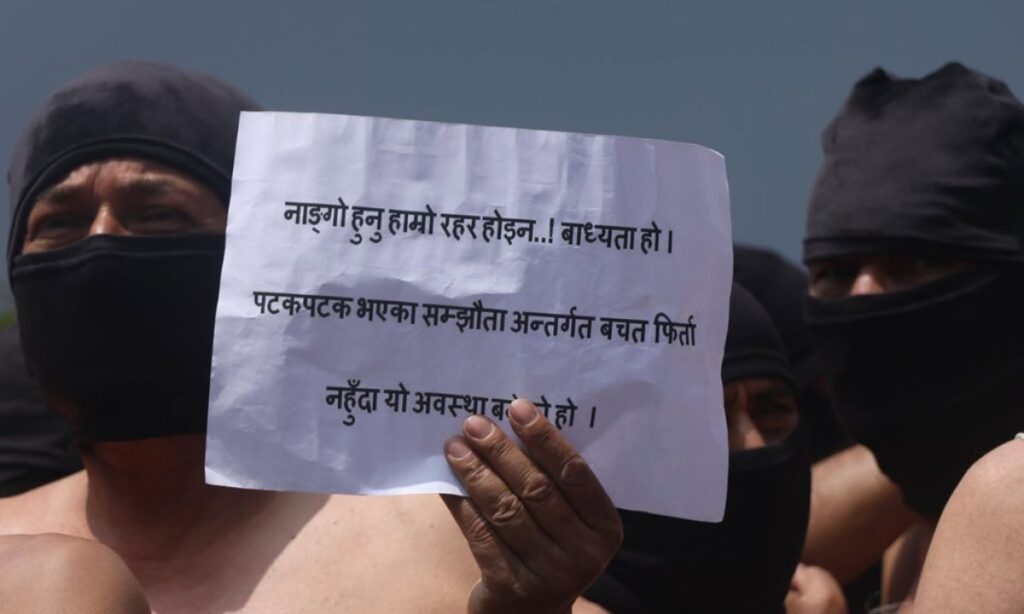 नाङ्गो हुनु हाम्रो रहर होइन..! बाध्यता हो ।
पटकपटक भएका सम्झौता अन्तर्गत बचत फिर्ता
नहुँदा यो अवस्था हो ।